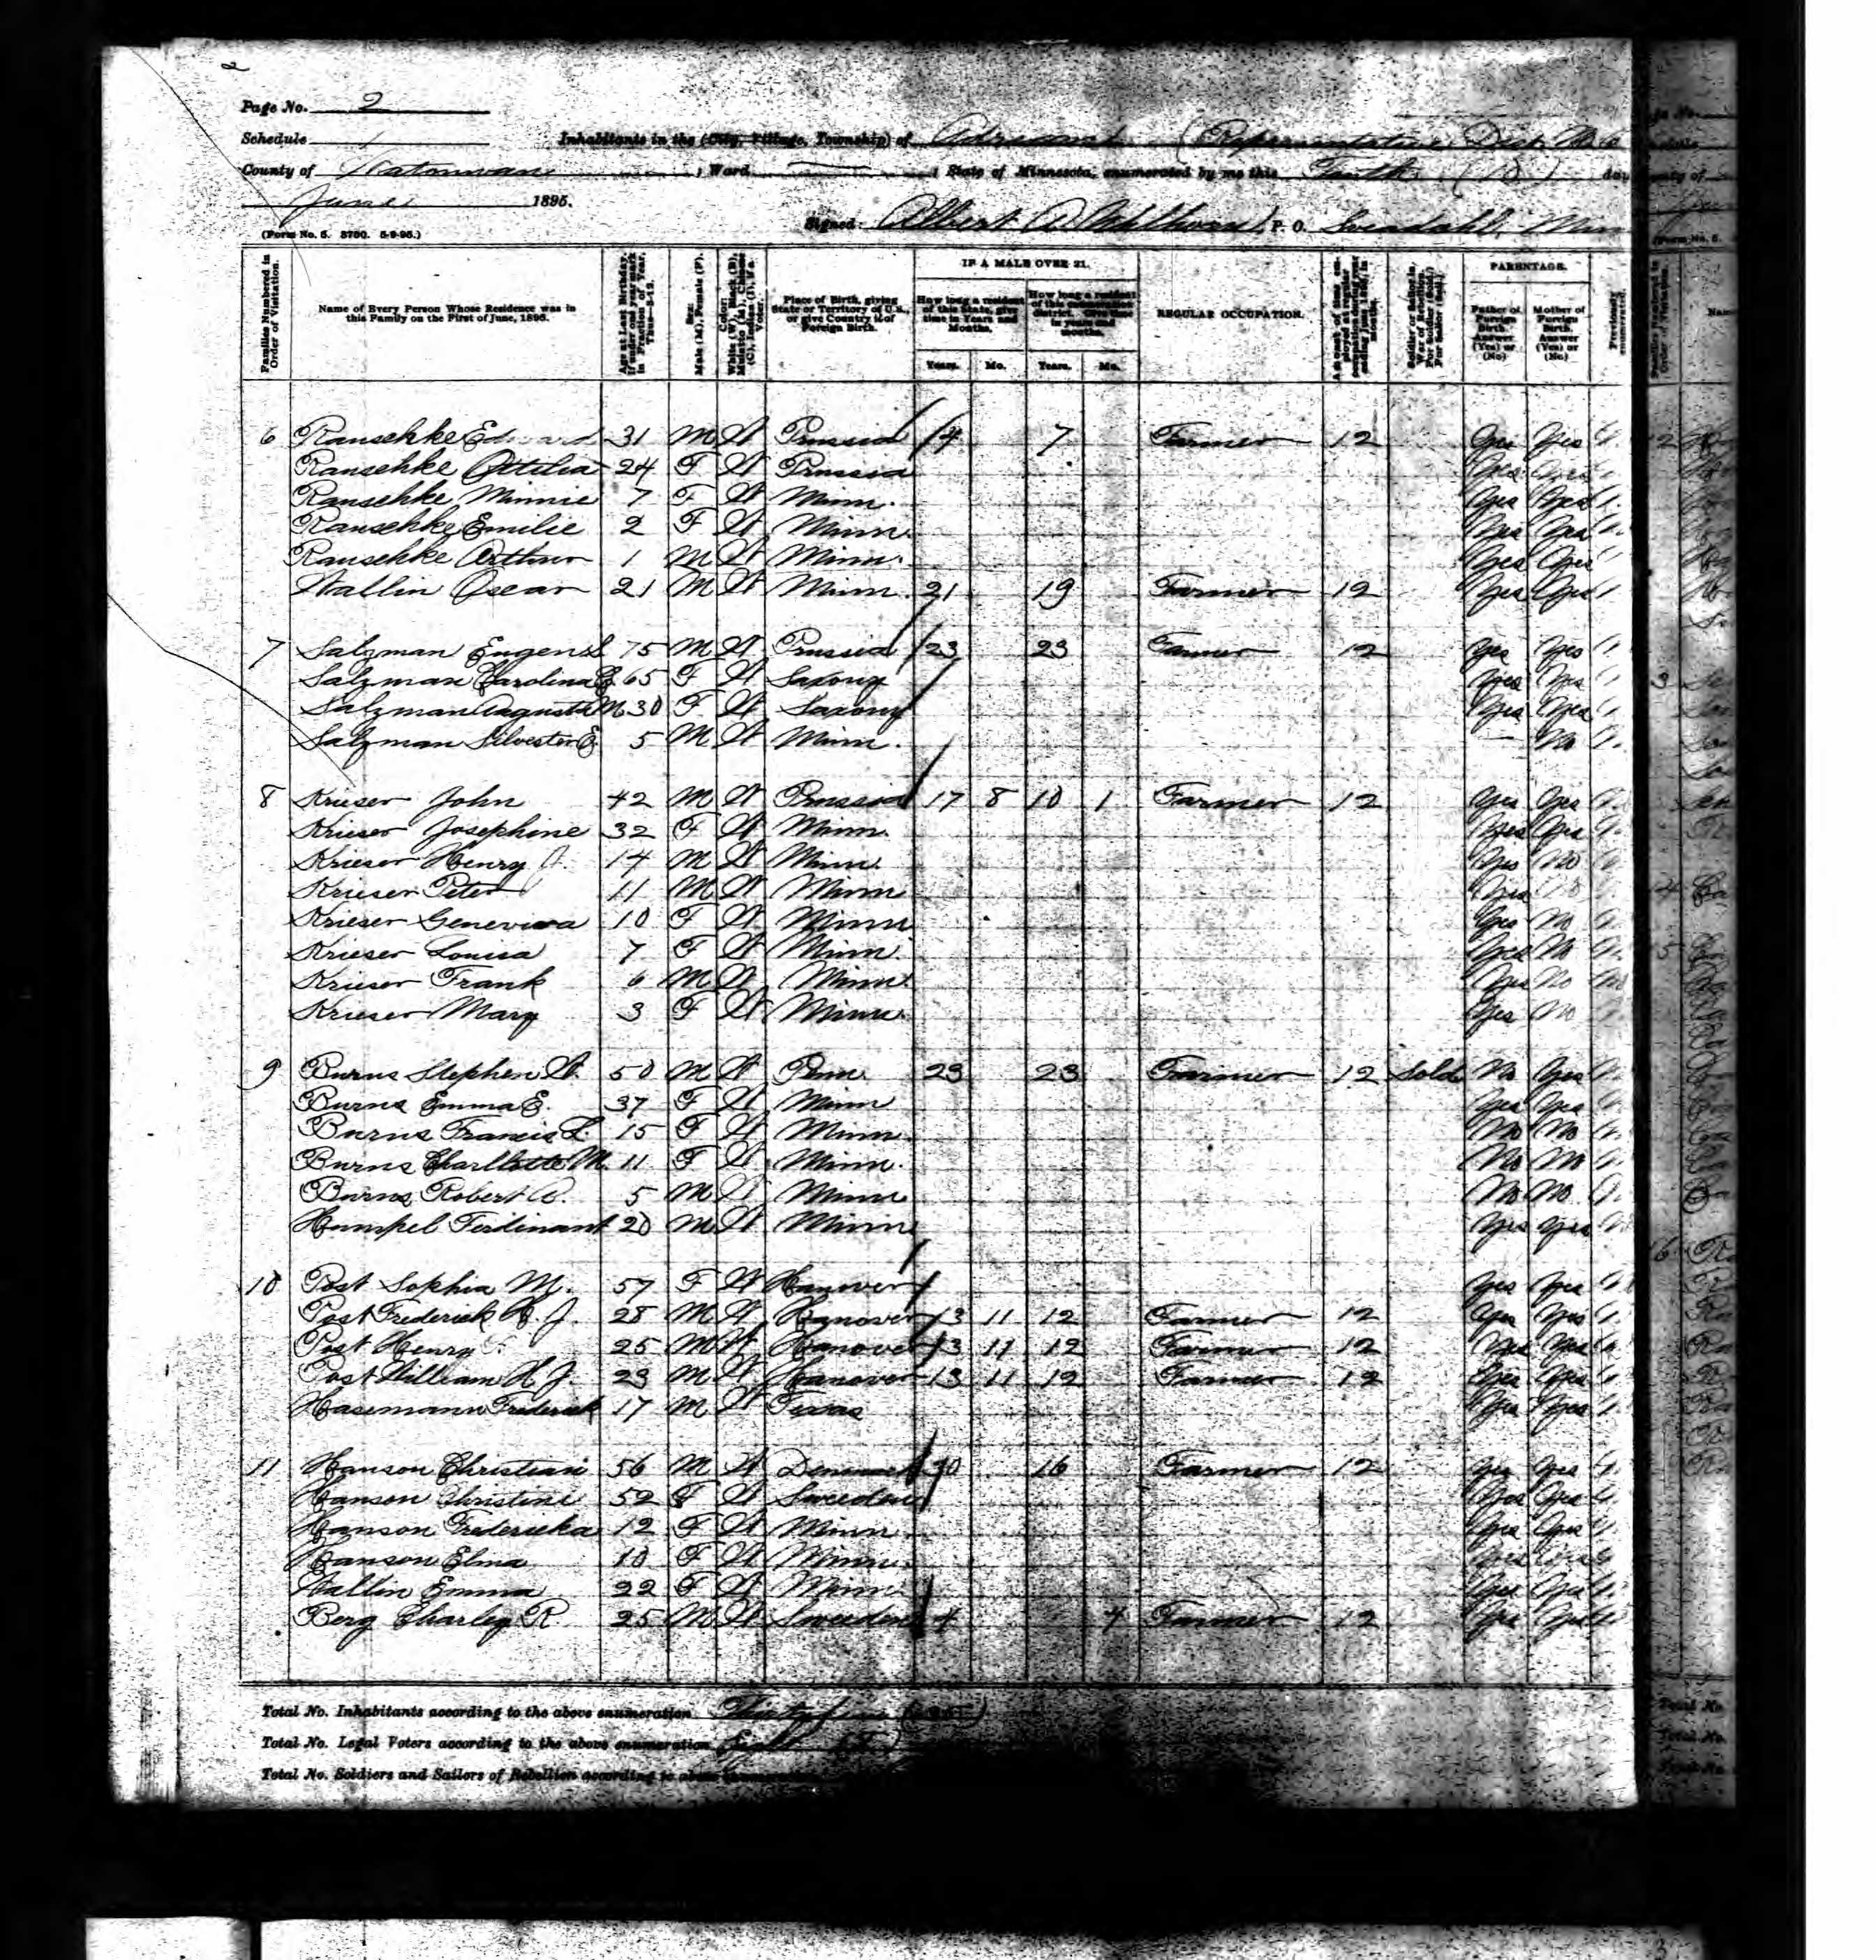 2
Page No. 2
Schedule 1 Inhabitants in the (City, Village, Township) of Adrian (Representative Dist. No
County of Watonwan ; Ward ; State of Minnesota, enumerated by me this Tenth (10) day
June 1895.
Signed: Albert P. O. Sveadahl, Minn
(Form No. 5. 3750. 5-9-95.)
IF A MALE OVER 21. PARENTAGE.
Families Numbered in Order of Visitation. Name of Every Person Whose Residence was in this Family on the First of June, 1895. Age at Last Birthday. Sex: Male (M), Female (F). Place of Birth, giving State or Territory of U.S., or give Country if of Foreign Birth. How long a resident of this State, give time in Years and Months. How long a resident of this enumeration district. Give time in years and months. REGULAR OCCUPATION. Father of Foreign Birth. Answer (Yes) or (No) Mother of Foreign Birth. Answer (Yes) or (No) Previously enumerated.
Years. Mo. Years. Mo.
6 Rauschke Edward 31 M W Prussia 14 7 Farmer 12 Yes Yes
Rauschke Ottilia 24 F W Prussia Yes Yes
Rauschke Minnie 7 F W Minn. Yes Yes
Rauschke Emilie 2 F W Minn. Yes Yes
Rauschke Arthur 1 M W Minn. Yes Yes
Wallin Oscar 21 M W Minn. 21 19 Farmer 12 Yes Yes
7 Salzman Eugen 75 M W Prussia 23 23 Farmer 12 Yes Yes
Salzman Carolina 65 F W Saxony Yes Yes
Salzman Augusta M 30 F W Saxony Yes Yes
Salzman Silvester E. 5 M W Minn. — No
8 Krieser John 42 M W Prussia 17 8 10 1 Farmer 12 Yes Yes
Krieser Josephine 32 F W Minn. Yes Yes
Krieser Henry J. 14 M W Minn. Yes No
Krieser Peter 11 M W Minn Yes No
Krieser Geneviva 10 F W Minn Yes No
Krieser Louisa 7 F W Minn. Yes No
Krieser Frank 6 M W Minn. Yes No
Krieser Mary 3 F W Minn. Yes No
9 Burns Stephen W. 50 M W Penn. 23 23 Farmer 12 Sold No Yes
Burns Emma E. 37 F W Minn Yes Yes
Burns Francis L. 15 F W Minn. No No
Burns Charllotte M. 11 F W Minn. No No
Burns Robert A. 5 M W Minn No No
Humpel Ferdinant 20 M W Minn Yes Yes
10 Post Sophia M. 57 F W Hanover Yes Yes
Post Frederick H. J. 28 M W Hanover 13 11 12 Farmer 12 Yes Yes
Post Henry 25 M W Hanover 13 11 12 Farmer 12 Yes Yes
Post William H J. 23 M W Hanover 13 11 12 Farmer 12 Yes Yes
Hasemann Frederick 17 M W Texas Yes Yes
11 Hanson Christian 56 M W Denmark 30 16 Farmer 12 Yes Yes
Hanson Christine 52 F W Sweeden Yes Yes
Hanson Fredericka 12 F W Minn Yes Yes
Hanson Elma 10 F W Minn. Yes Yes
Wallin Emma 22 F W Minn. Yes Yes
Berg Charley R. 25 M W Sweeden 4 4 Farmer 12 Yes Yes
Total No. Inhabitants according to the above enumeration Thirty five (35)
Total No. Legal Voters according to the above enumeration Eight
Total No. Soldiers and Sailors of Rebellion according to above